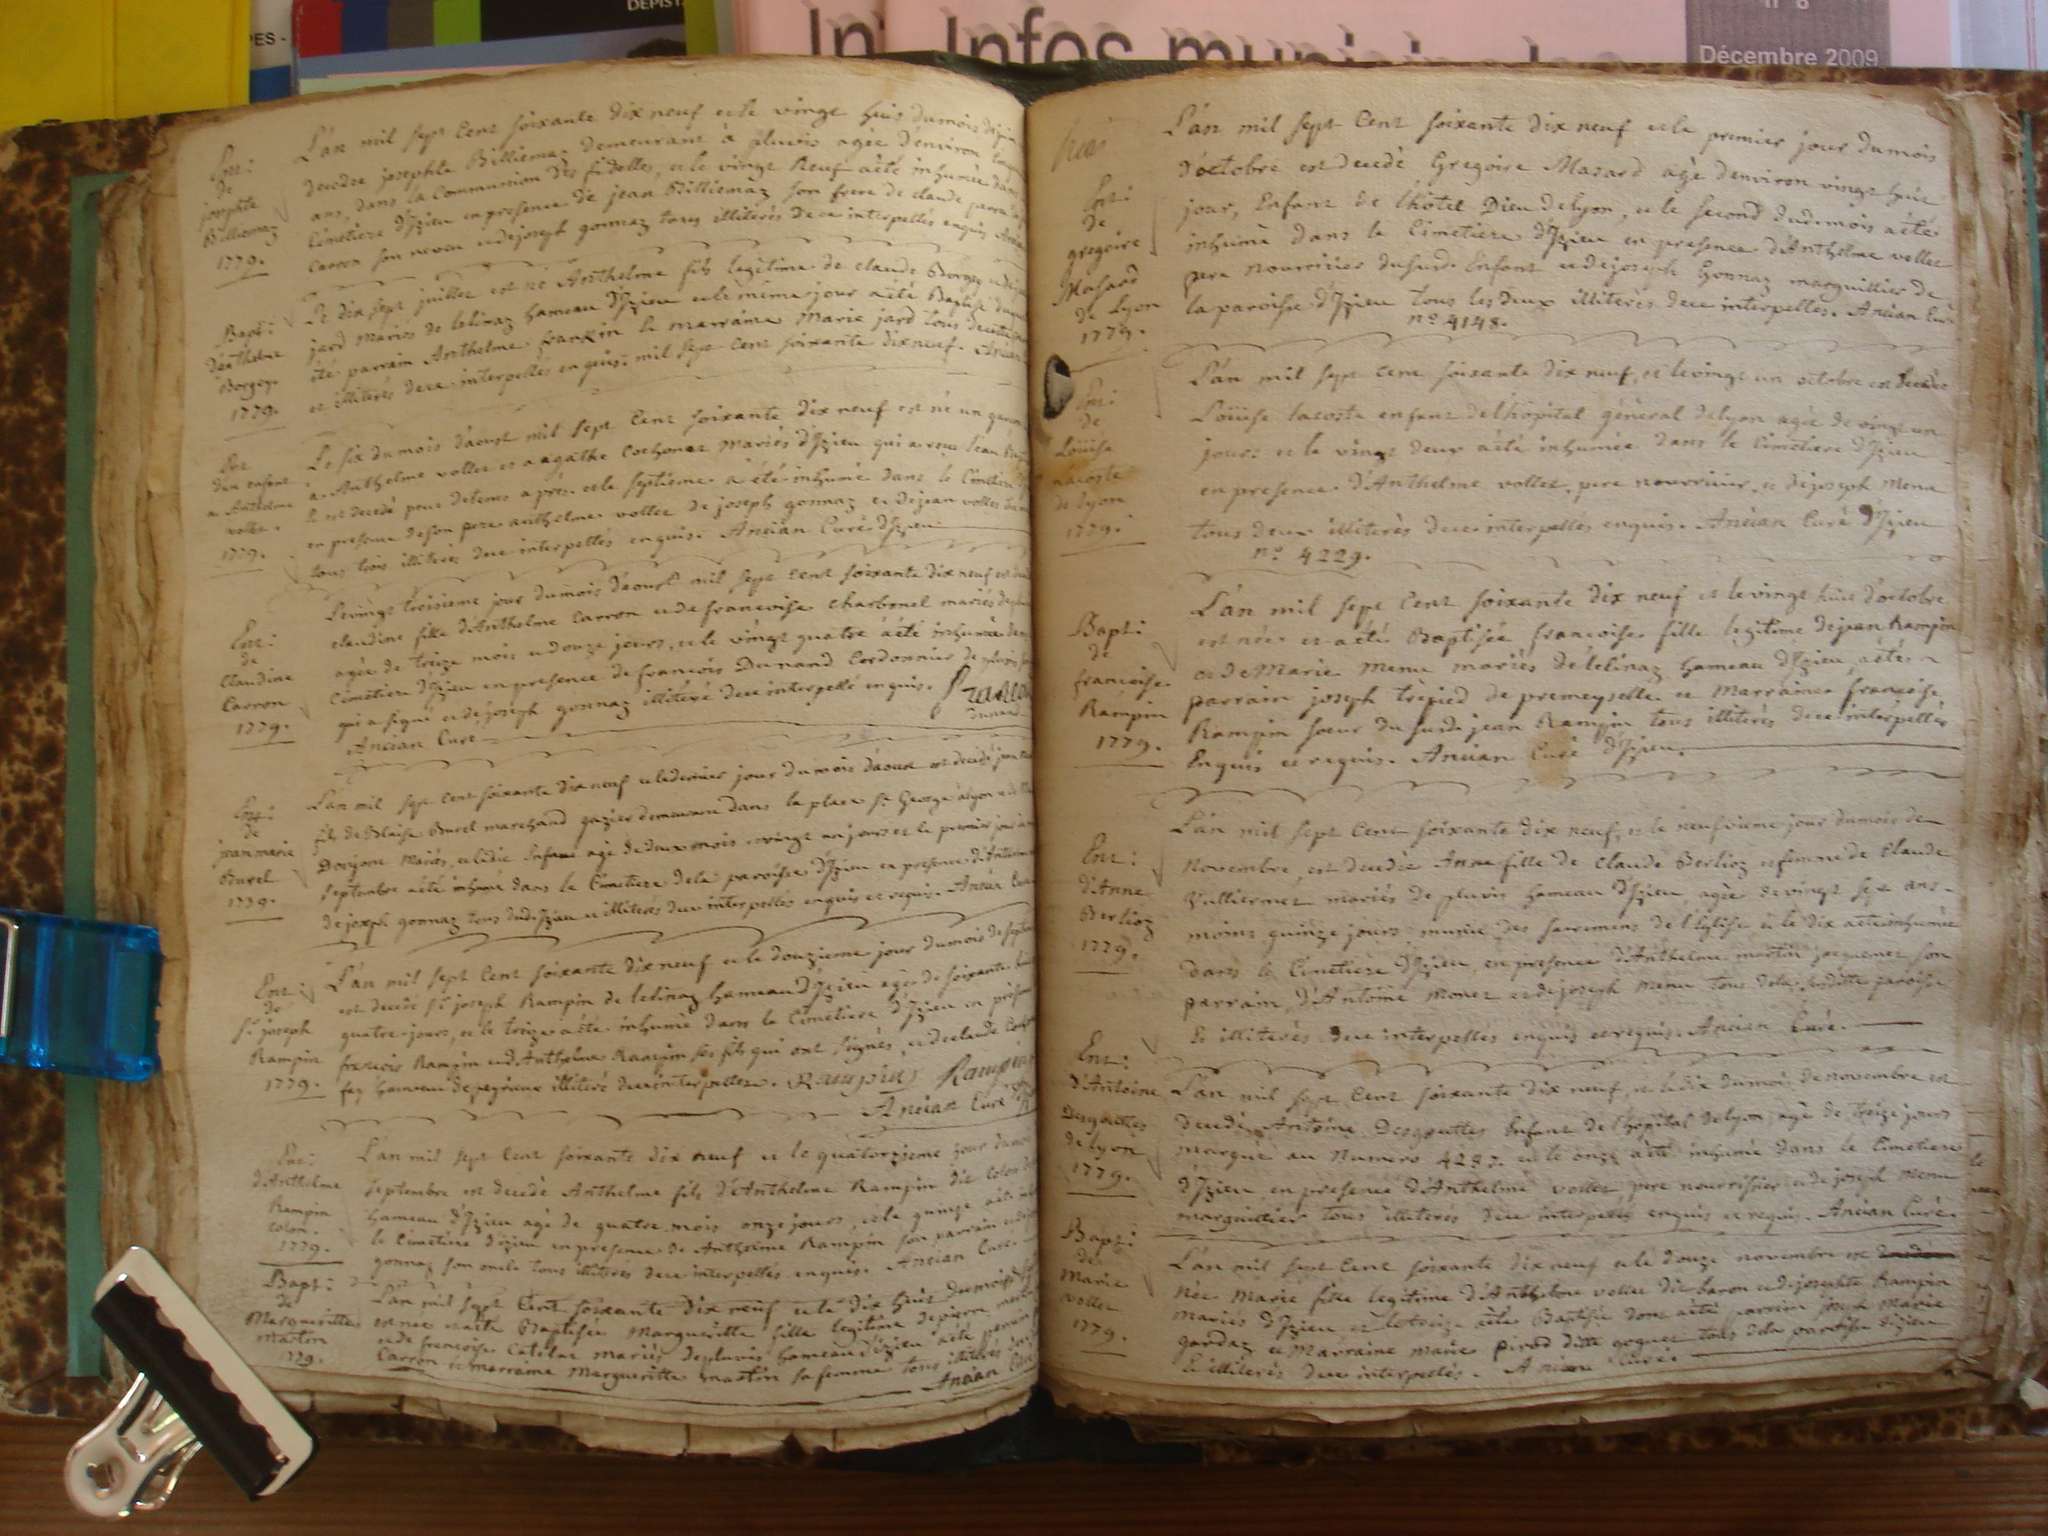 PES -
DÉPIST
Infos
n° 8
Décembre 2009
Ent:
de
josephte
Billiemaz
1779.
L'an mil sept Cent soixante dix neuf et le vingt huit du mois
decedée josephte Billiemaz demeurant à pluvis agée d'environ
ans, dans la Communion des fidelles, et le vingt neuf a été inhumée dans
Cimetiere d'Izieu en presence de jean Billiemaz son frere de claude
Carron son neveu et de joseph gonnaz tous illiterés de ce interpellés enquis
Bapt:
d'anthelme
Borgey.
1779.
Le dix sept juillet est né Anthelme fils legitime de claude Borgey
jard Mariés de lelinaz hameau d'Izieu et le même jour a été Baptisé
été parrain Anthelme la marraine Marie jard tous
et illiterés de ce interpellés enquis. mil sept Cent soixante dix neuf.
Ent
d'un enfant
a Anthelme
vollet.
1779.
Le six du mois d'aoust mil sept Cent soixante dix neuf est né un garçon
a Anthelme vollet et a agathe Cochonat Mariés d'Izieu qui a reçu l'eau
et est decedé peu de tems aprés. et le septieme a été inhumé dans le Cimetiere
en presence de son pere anthelme vollet de joseph gonnaz et de jean vollet
tous trois illiterés de ce interpellés enquis. Ancian Curé d'Izieu
Ent:
de
Claudine
Carron
1779.
Le vingt troisieme jour du mois d'aoust mil sept Cent soixante dix neuf est
claudine fille d'Anthelme Carron et de françoise Charbonel mariés
agée de treize mois et douze jours, et le vingt quatre a été inhumée
Cimetiere d'Izieu en presence de francois Dunand Cordonnier de
qui a signé et de joseph gonnaz illiteré de ce interpellé enquis.
Ancian Curé
Ent:
de
jean marie
Burel
1779.
L'an mil sept Cent soixante dix neuf et le dernier jour du mois d'aoust est decedé jean
fils de Blaise Burel marchand gazier demeurant dans la place St George a lyon
mariés, et ledit Enfant agé de deux mois vingt un jours et le premier jour
septembre a été inhumé dans le Cimetiere de la paroisse d'Izieu en presence d'Anthelme
de joseph gonnaz tous dud. Izieu et illiterés de ce interpellés enquis et requis. Ancian Curé
Ent:
de
Sr joseph
Rampin
1779.
L'an mil sept Cent soixante dix neuf et le douzieme jour du mois de
est decedé Sr joseph Rampin de lelinaz hameau d'Izieu agé de soixante
quatre jours, et le treize a été inhumé dans le Cimetiere d'Izieu en
francois Rampin et d'Anthelme Rampin ses fils qui ont signés, et de claude
hameau de illiteré de ce interpellez. Rampin Rampin
Ancian Curé
Ent:
d'Anthelme
Rampin
colon.
1779.
L'an mil sept Cent soixante dix neuf et le quatorzieme jour du mois
septembre est decedé Anthelme fils d'Anthelme Rampin dit colon
hameau d'Izieu agé de quatre mois onze jours, et le quinze a été
le Cimetiere d'Izieu en presence de Anthelme Rampin son parrain
gonnaz son oncle tous illiterés de ce interpellés enquis. Ancian Curé.
Bapt:
de
Margueritte
martin
1779.
L'an mil sept Cent soixante dix neuf et le dix huit du mois
est née et a été Baptisée Margueritte fille legitime de pierre martin
et de francoise Catelas mariés de pluvis hameau d'Izieu a été parrain
Carron et marraine Margueritte martin sa femme tous illiterés
Ancian Curé
Ent:
de
gregoire
Masard
de Lyon
1779.
L'an mil sept Cent soixante dix neuf et le premier jour du mois
d'octobre est decedé Gregoire Masard agé d'environ vingt huit
jour, Enfant de l'hôtel Dieu de lyon, et le second dud. mois a été
inhumé dans le Cimetiere d'Izieu en presence d'Anthelme vollet
pere nourricier du susd. Enfant et de joseph Gonnaz marguillier de
la paroisse d'Izieu tous les deux illiterés de ce interpellés. Ancian Curé
n° 4148.
Ent:
de
Loüise
lacoste
de lyon
1779.
L'an mil sept Cent soixante dix neuf, et le vingt un octobre est decedée
Loüise lacoste enfant de l'hôpital général de lyon agée de vingt un
jours et le vingt deux a été inhumée dans le Cimetiere d'Izieu
en presence d'Anthelme vollet, pere nourricier, et de joseph Menu
tous deux illiterés de ce interpellés enquis. Ancian Curé d'Izieu
n° 4229.
Bapt:
de
françoise
Rampin
1779.
L'an mil sept Cent soixante dix neuf et le vingt huit d'octobre
est née et a été Baptisée françoise fille legitime de jean Rampin
et de Marie Menu mariés de lelinaz hameau d'Izieu, a été
parrain joseph trepied de premeyselle et Marraine françoise
Rampin soeur du susd. jean Rampin tous illiterés de ce interpellés
Enquis et requis. Ancian Curé d'Izieu.
Ent:
d'Anne
Berlioz
1779.
L'an mil sept Cent soixante dix neuf, et le neufvieme jour du mois de
Novembre, est decedée Anne fille de Claude Berlioz et femme de Claude
Vulliermet mariés de pluvis hameau d'Izieu, agée de vingt sept ans
moins quinze jours munie des sacremens de l'Eglise et le dix a été inhumée
dans le Cimetiere d'Izieu, en presence d'Anthelme martin jacquenet son
parrain, d'Antoine Monet et de joseph Menu tous de la susditte paroisse
Et illiterés de ce interpellés enquis et requis. Ancian Curé.
Ent:
d'Antoine
Desgouttes
de Lyon
1779.
L'an mil sept Cent soixante dix neuf, et le dix du mois de novembre est
decedé Antoine Desgouttes Enfant de l'hopital de lyon, agé de treize jours
marqué au Numero 4287. et le onze a été inhumé dans le Cimetiere
d'Izieu en presence d'Anthelme vollet pere nourrissier et de joseph Menu
marguillier tous illiterés de ce interpellés enquis et requis. Ancian Curé.
Bapt:
de
Marie
vollet
1779.
L'an mil sept Cent soixante dix neuf et le douze novembre est decedée
Née Marie fille legitime d'Anthelme vollet dit baron et de josephte Rampin
mariés d'Izieu et le treize a été Baptisée dont a été parrain joseph Marie
gardaz et Marraine marie pirod ditte goguet tous de la paroisse d'Izieu
Et illiterés de ce interpellés. Ancian Curé.